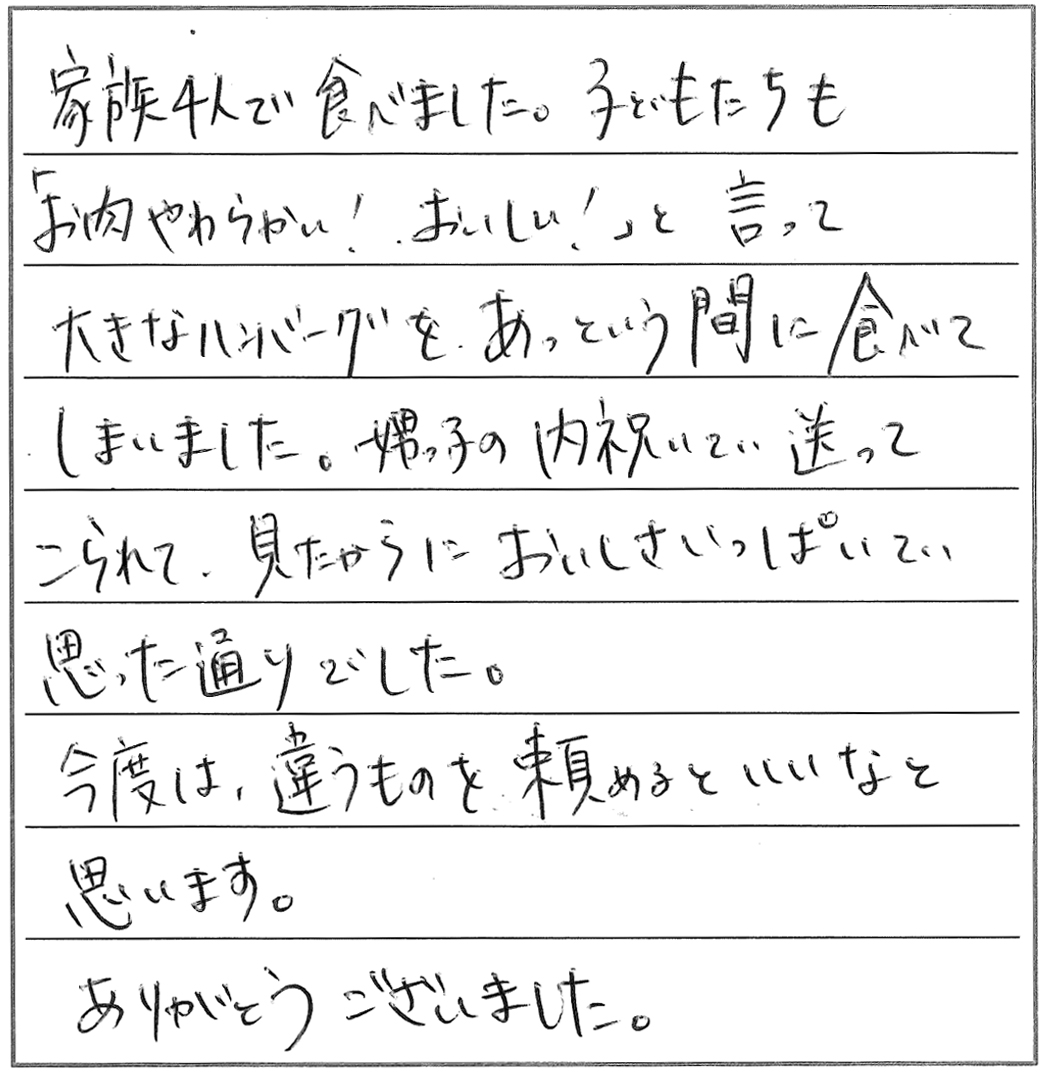 家族4人で食べました。子どもたちも
「お肉やわらかい!おいしい!」と言って
大きなハンバーグを、あっという間に食べて
しまいました。甥っ子の内祝いでい送って
こられて、見たからにおいしさいっぱいでい
思った通りでした。
今度は、違うものを頼めるといいなと
思います。
ありがとうございました。